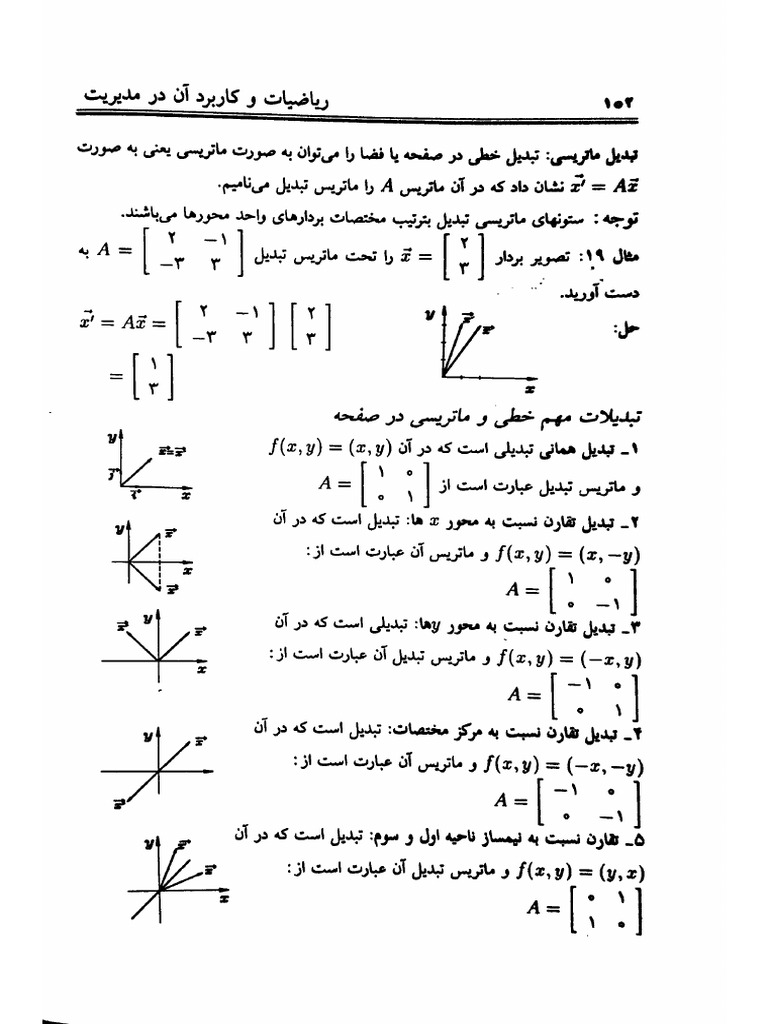 ۱۰۲ ریاضیات و کاربرد آن در مدیریت
تبدیل ماتریسی: تبدیل خطی در صفحه یا فضا را می‌توان به صورت ماتریسی یعنی به صورت
x⃗′ = Ax⃗ نشان داد که در آن ماتریس A را ماتریس تبدیل می‌نامیم.
توجه: ستونهای ماتریسی تبدیل بترتیب مختصات بردارهای واحد محورها می‌باشند.
مثال ۱۹: تصویر بردار x⃗ = [۲ ; ۳] را تحت ماتریس تبدیل A = [۲ −۱ ; −۳ ۳] به
دست آورید.
حل: x⃗′ = Ax⃗ = [۲ −۱ ; −۳ ۳] [۲ ; ۳]
= [۱ ; ۳]
y x⃗′ x⃗ x
تبدیلات مهم خطی و ماتریسی در صفحه
۱ـ تبدیل همانی تبدیلی است که در آن f(x, y) = (x, y)
و ماتریس تبدیل عبارت است از A = [۱ ۰ ; ۰ ۱]
y x⃗=x⃗′ j⃗ i⃗ x
۲ـ تبدیل تقارن نسبت به محور x ها: تبدیل است که در آن
f(x, y) = (x, −y) و ماتریس آن عبارت است از:
A = [۱ ۰ ; ۰ −۱]
y x⃗ x x⃗′
۳ـ تبدیل تقارن نسبت به محور yها: تبدیلی است که در آن
f(x, y) = (−x, y) و ماتریس تبدیل آن عبارت است از:
A = [−۱ ۰ ; ۰ ۱]
x⃗′ y x⃗ x
۴ـ تبدیل تقارن نسبت به مرکز مختصات: تبدیل است که در آن
f(x, y) = (−x, −y) و ماتریس آن عبارت است از:
A = [−۱ ۰ ; ۰ −۱]
y x⃗ x⃗′
۵ـ تقارن نسبت به نیمساز ناحیه اول و سوم: تبدیل است که در آن
f(x, y) = (y, x) و ماتریس تبدیل آن عبارت است از:
A = [۰ ۱ ; ۱ ۰]
y x⃗′ x⃗ x